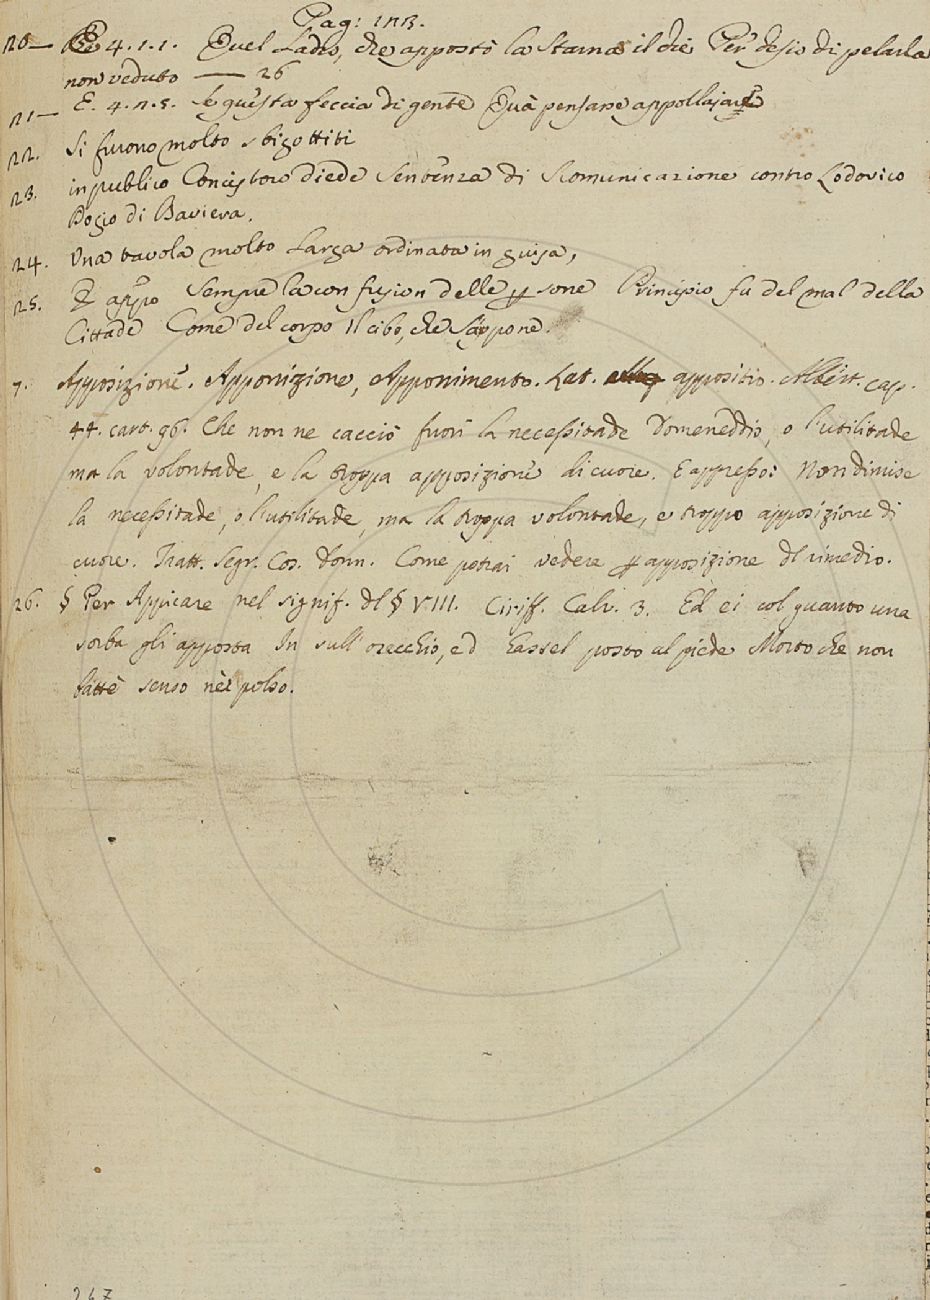 Pag: 123.
20— E 4. 1. 1. Quel Ladro, che appostò la starna il die Per desio di pelarla
non veduto —— 26
21— E. 4. 2. 5. se questa feccia di gente Quà pensare appollajarse
22. Si furono molto sbigottiti
23. in publico Concistoro diede Sentenza di Scomunicazione contro Lodovico
Dogio di Baviera.
24. Una tavola molto larga ordinata in guisa,
25. E appo Sempre la confusion delle psone Principio fu del mal della
Cittade Come del corpo il cibo, che s'appone.
7. Apposizione. Apponizione, Apponimento. Lat. appositio. Albert. cap.
44. cart. 96. Che non ne cacciò fuori la necessitade Domeneddio, o l'utilitade
ma la volontade, e la troppa apposizione di cuore. E appresso: Non dimise
la necessitade, o l'utilitade, ma la troppa volontade, e troppo apposizione di
cuore. Tratt. Segr. Cos. Donn. Come potrai vedere p apposizione dl rimedio.
26. § Per Appicare nel signif. dl § VIII. Ciriff. Calv. 3. Ed ei col guanto una
sorba gli apposta In sull'orecchio, ed Eassel posto al piede Morto che non
battè senso nè polso.
267